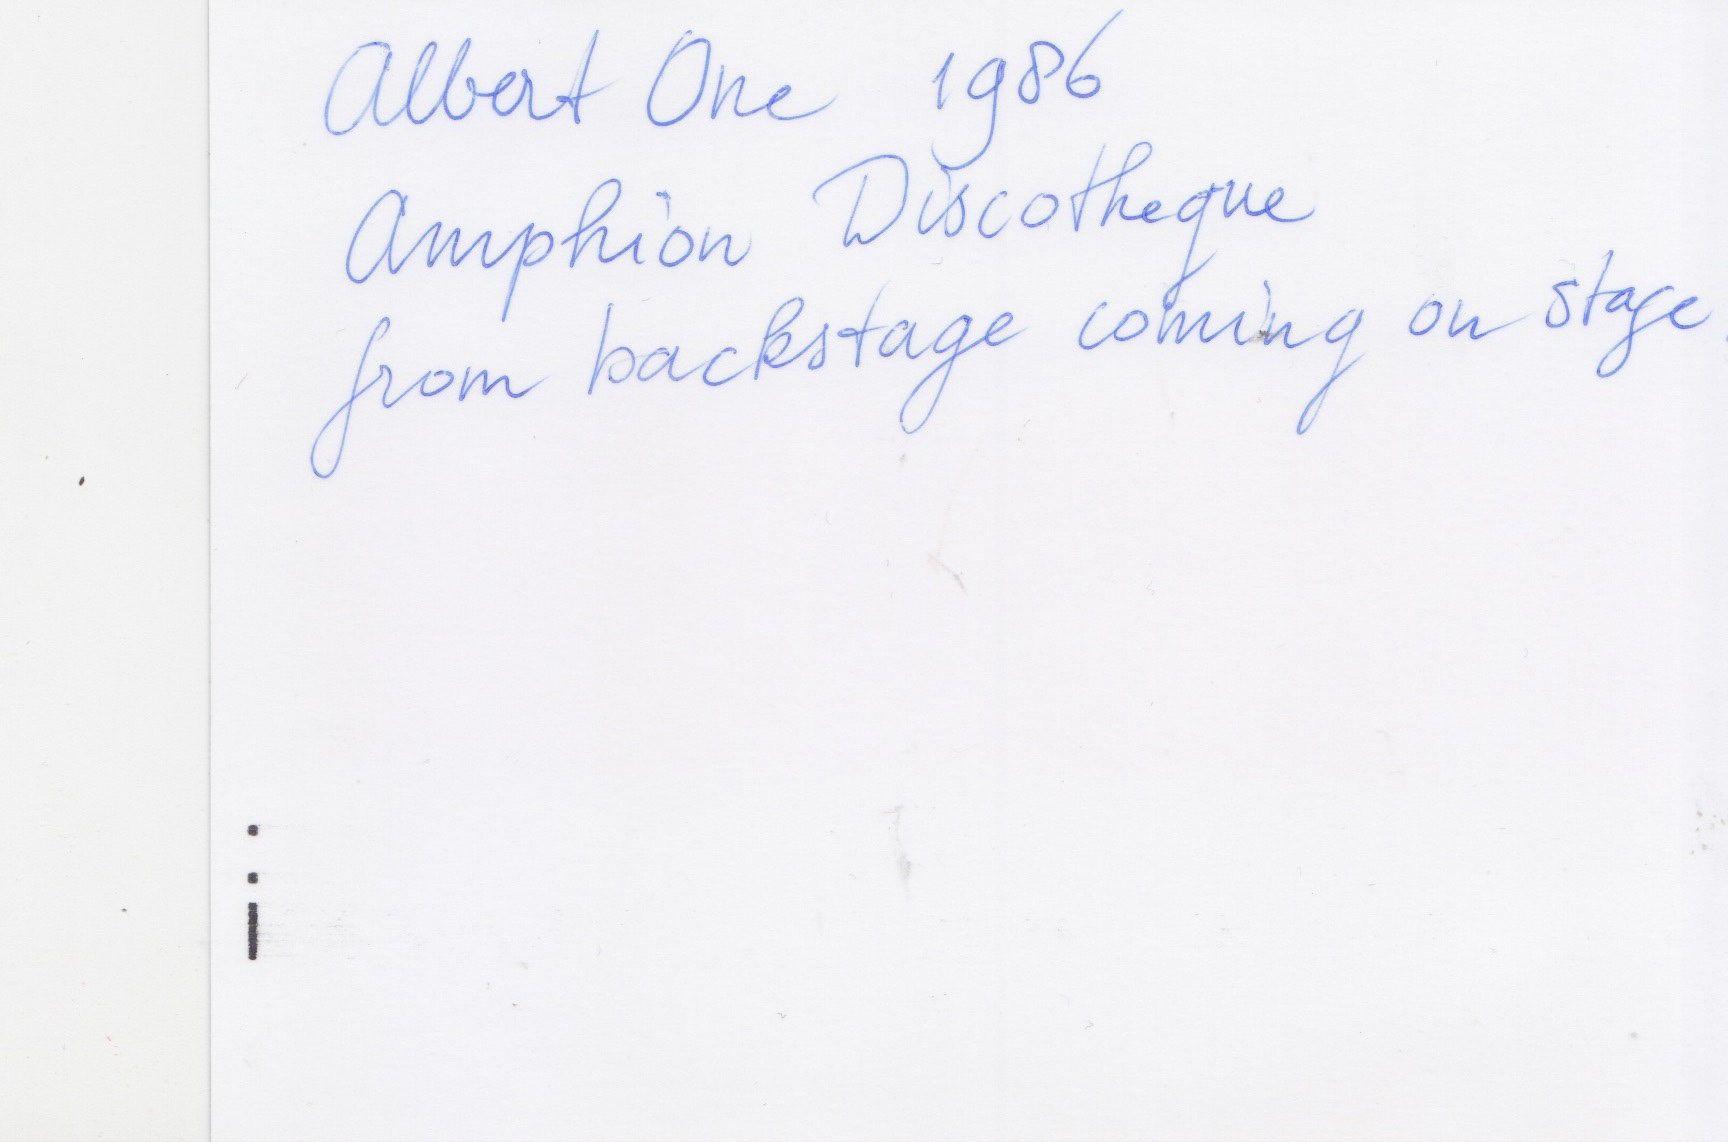 Albert One 1986
Amphion Discotheque
from backstage coming on stage.